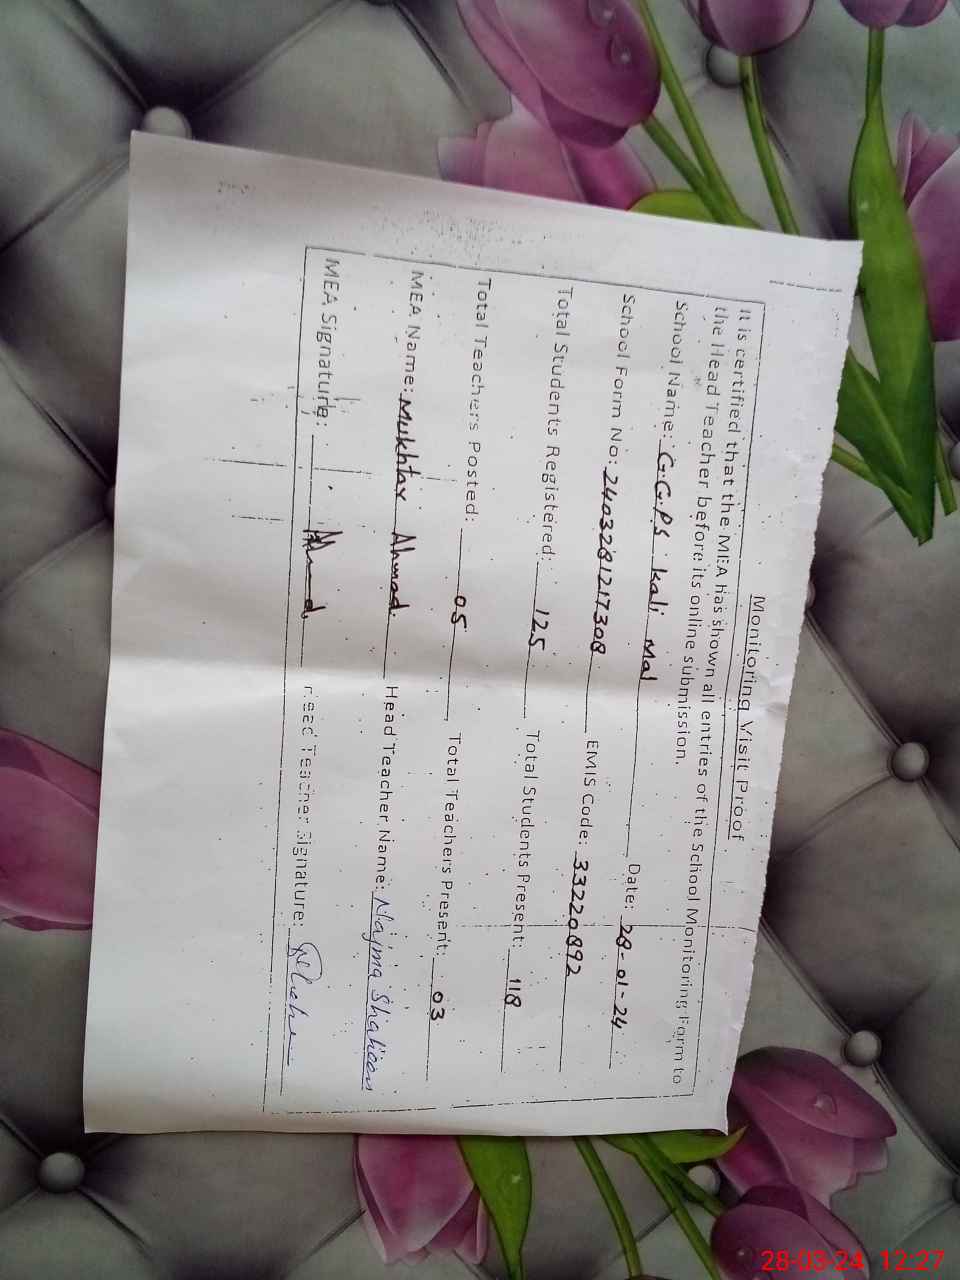 Monitoring Visit Proof
It is certified that the MEA has shown all entries of the School Monitoring Form to
the Head Teacher before its online submission.
School Name: G.G.P.S Kali Mal Date: 28-01-24
School Form No: 2403281217308 EMIS Code: 33220892
Total Students Registered: 125 Total Students Present: 118
Total Teachers Posted: 05 Total Teachers Present: 03
MEA Name: Mukhtar Ahmad Head Teacher Name: Najma Shaheen
MEA Signature: Ahmad Head Teacher Signature:
28-03-24 12:27